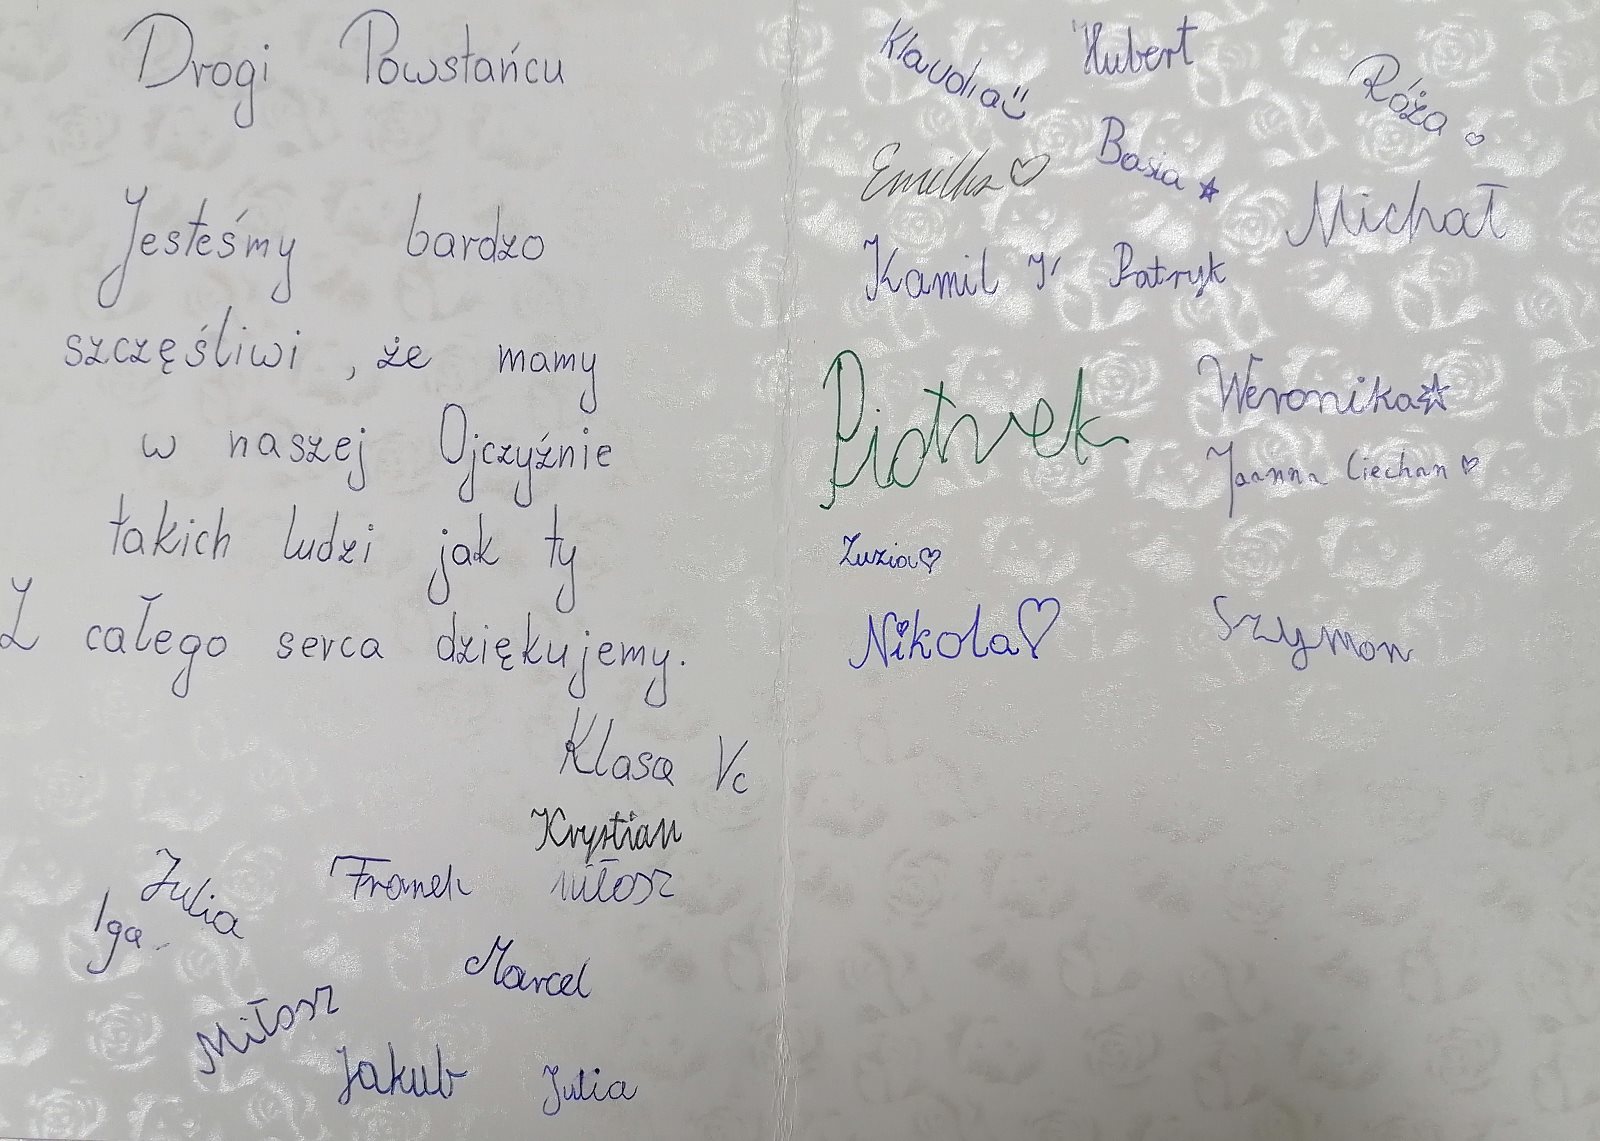 Drogi Powstańcu
Jesteśmy bardzo
szczęśliwi, że mamy
w naszej Ojczyźnie
takich ludzi jak ty
Z całego serca dziękujemy.
Klasa Vc
Krystian
Julia Franek Miłosz
Iga
Marcel
Miłosz
Jakub Julia
Klaudia Hubert Róża
Emilka Basia
Michał
Kamil K Patryk
Piotrek Weronika
Joanna Ciechan
Zuzia
Nikola Szymon